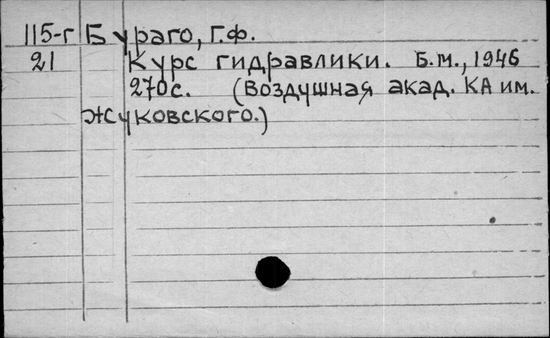 115-г Бураго, Г.Ф.
21 Курс гидравлики. Б.м., 1946
270с. (Воздушная акад. КА им.
Жуковского.)